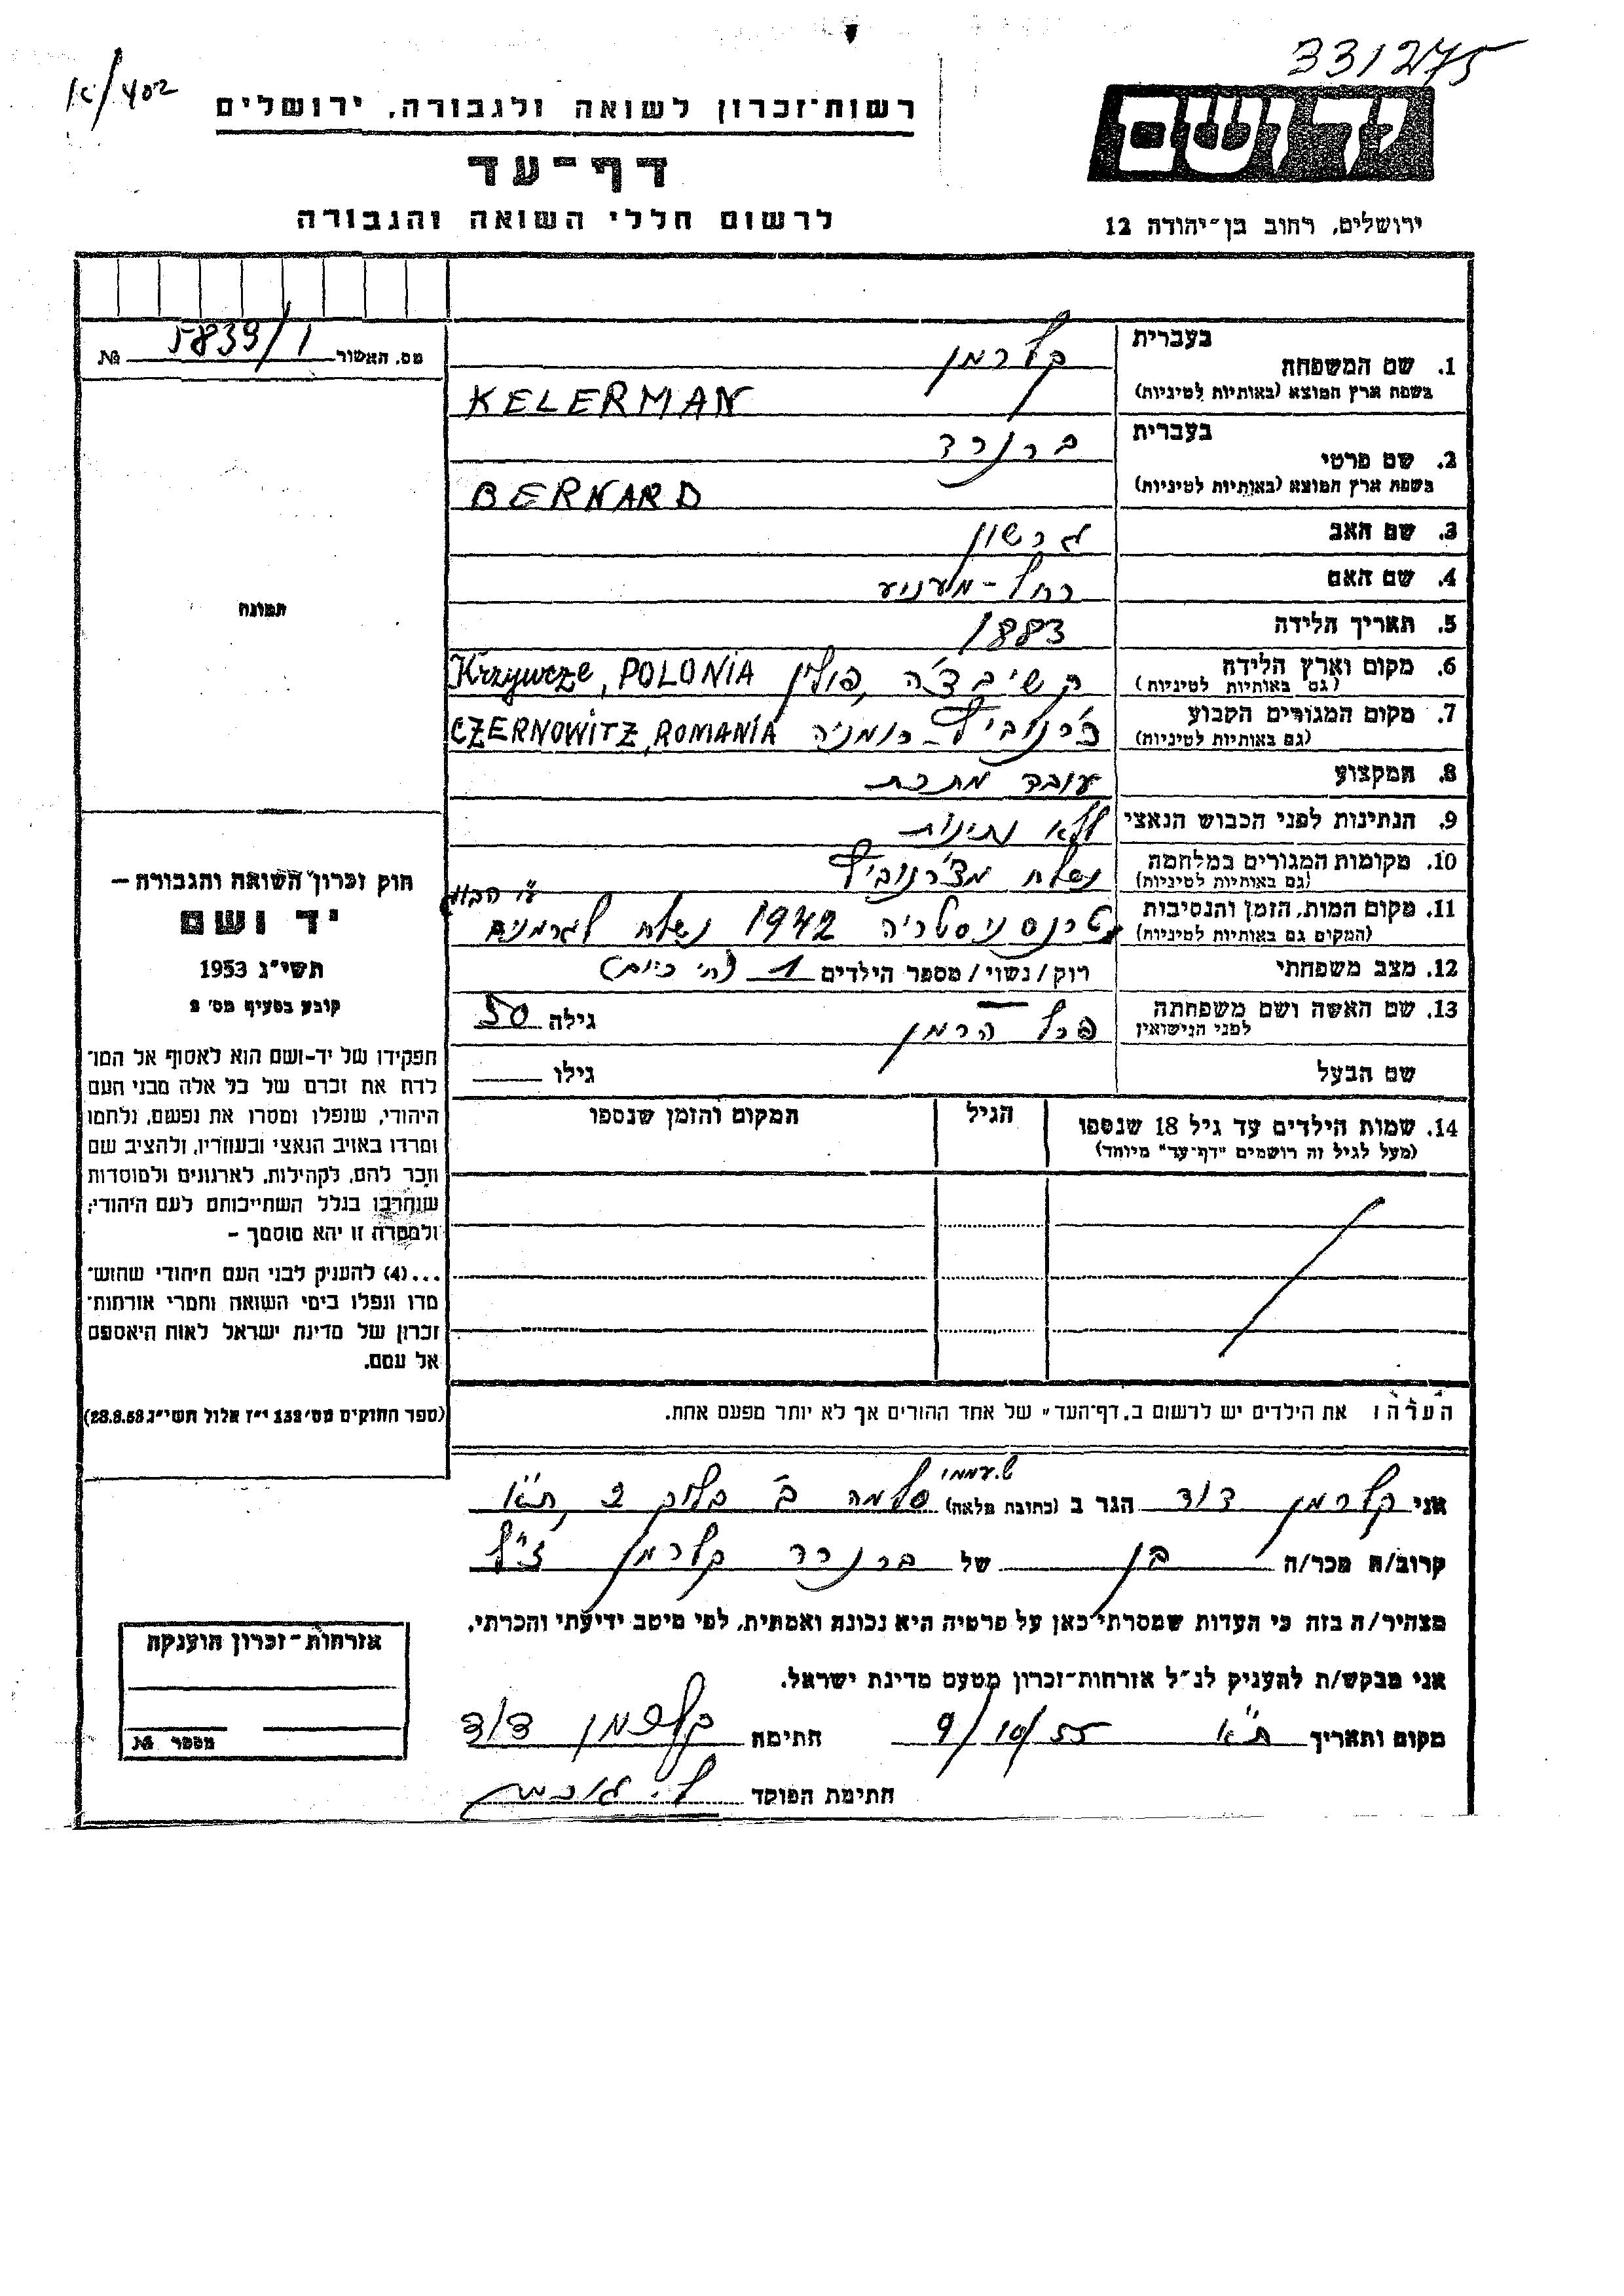 331275
402/א
יד ושם
רשות־זכרון לשואה ולגבורה, ירושלים
דף־עד
לרשום חללי השואה והגבורה
ירושלים, רחוב בן־יהודה 12
מס. האשור 5839/1 №
בעברית
1. שם המשפחה קלרמן
בשפת ארץ המוצא (באותיות לטיניות) KELERMAN
בעברית
2. שם פרטי ברנרד
בשפת ארץ המוצא (באותיות לטיניות) BERNARD
3. שם האב גרשון
4. שם האם רחל-
5. תאריך הלידה 1883
6. מקום וארץ הלידה קשיבצ'ה, פולין Krzywcze, POLONIA
(גם באותיות לטיניות)
7. מקום המגורים הקבוע צ'רנוביץ - רומניה CZERNOWITZ, ROMANIA
(גם באותיות לטיניות)
8. המקצוע עובד מתכת
9. הנתינות לפני הכבוש הנאצי ללא נתינות
10. מקומות המגורים במלחמה נשלח מצ'רנוביץ
(גם באותיות לטיניות)
11. מקום המות, הזמן והנסיבות טרנסניסטריה 1942 נשלח לגרמנים
(המקום גם באותיות לטיניות) ע"י
12. מצב משפחתי רווק/נשוי/מספר הילדים 1 (חי כיום)
13. שם האשה ושם משפחתה פרל הרמן גילה 50
לפני הנישואין
שם הבעל גילו
14. שמות הילדים עד גיל 18 שנספו הגיל המקום והזמן שנספו
(מעל לגיל זה רושמים "דף־עד" מיוחד)
הערה: את הילדים יש לרשום ב„דף־העד" של אחד ההורים אך לא יותר מפעם אחת.
תמונה
חוק זכרון השואה והגבורה –
יד ושם
תשי"ג 1953
קובע בסעיף מס' 2
תפקידו של יד-ושם הוא לאסוף אל המו־
לדת את זכרם של כל אלה מבני העם
היהודי, שנפלו ומסרו את נפשם, נלחמו
ומרדו באויב הנאצי ובעוזריו, ולהציב שם
וזכר להם, לקהילות, לארגונים ולמוסדות
שנחרבו בגלל השתייכותם לעם היהודי;
ולמטרה זו יהא מוסמך –
...(4) להעניק לבני העם היהודי שהוש־
מדו ונפלו בימי השואה והמרי אזרחות־
זכרון של מדינת ישראל לאות היאספם
אל עמם.
(ספר החוקים מס' 132 י"ז אלול תשי"ג 28.8.53)
ש.עממי
אני קלרמן דוד הגר ב (כתובת מלאה) סלמה ב' בלוק 2, ת"א
קרוב/ה מכר/ה בן של ברנרד קלרמן ז"ל
מצהיר/ה בזה כי העדות שמסרתי כאן על פרטיה היא נכונה ואמתית, לפי מיטב ידיעתי והכרתי.
אני מבקש/ת להעניק לנ"ל אזרחות־זכרון מטעם מדינת ישראל.
מקום ותאריך ת"א 9/10/55 חתימה קלרמן דוד
חתימת הפוקד
אזרחות־זכרון הוענקה
מספר №